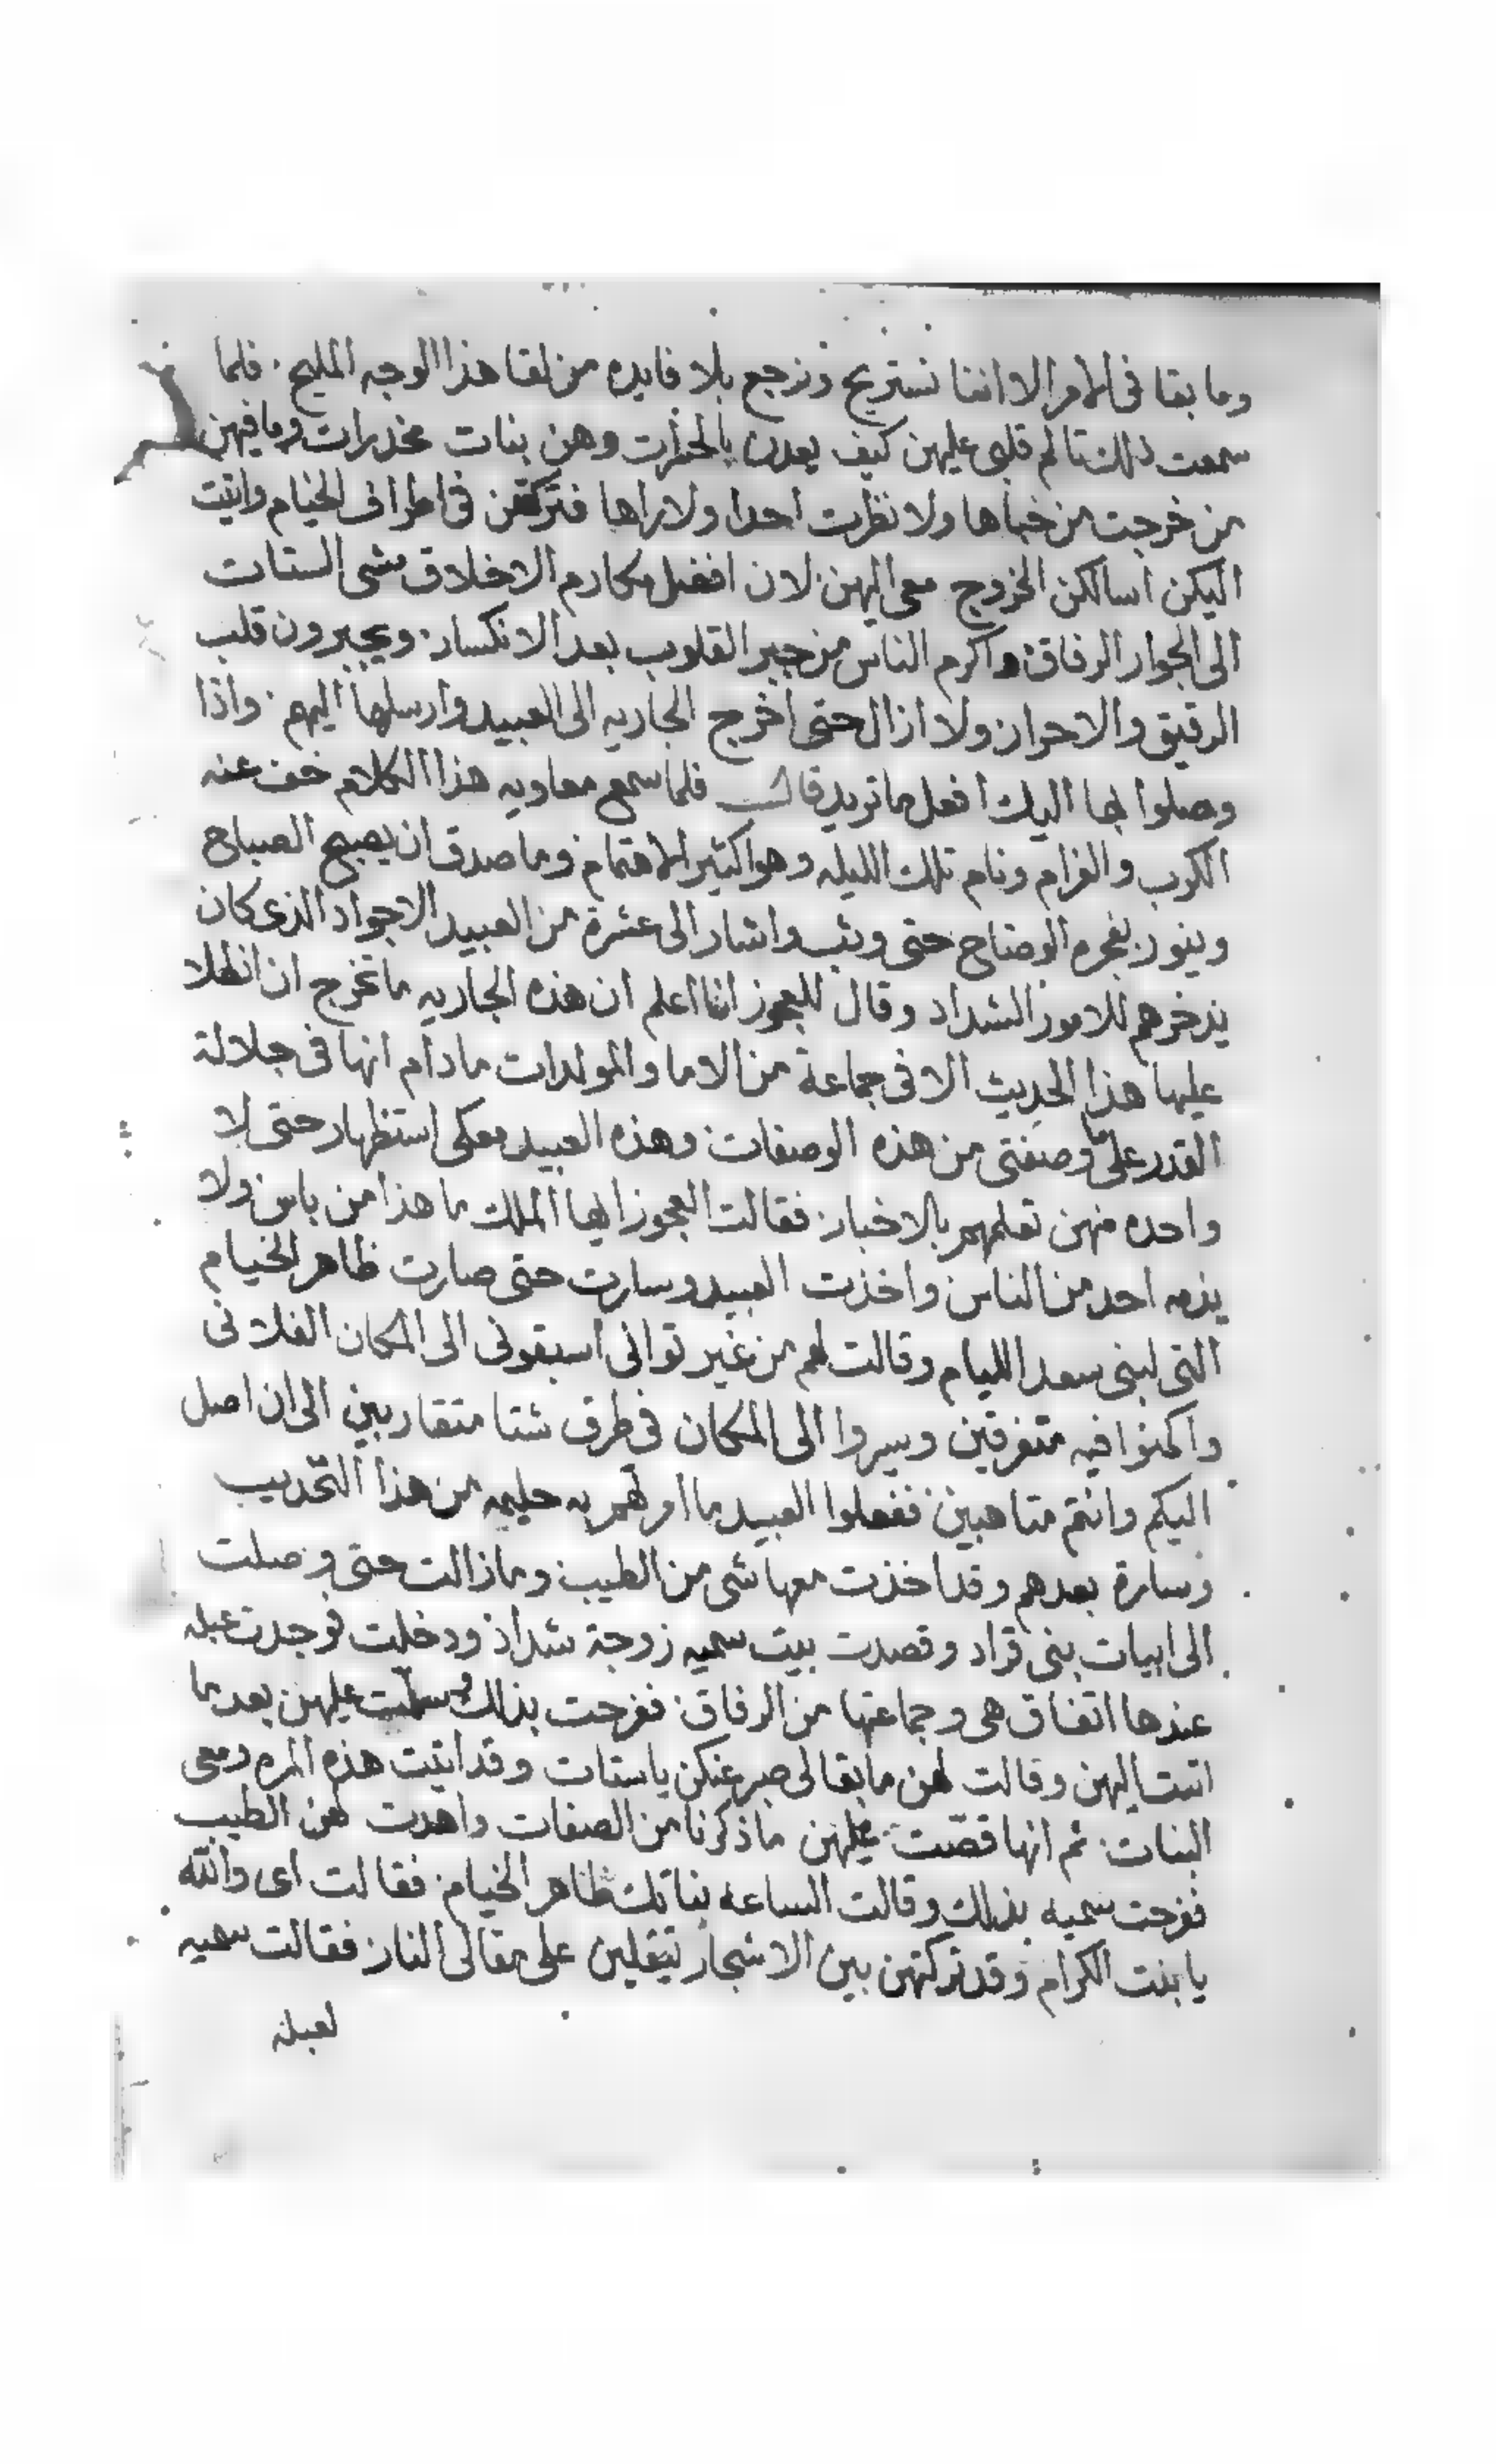 وما بقا فى الامر الا اننا نستريح ونرجع بلا فايده من لقا هذا الوجه المليح. فلما
سمعت ذلك تالم قلبى عليهن كيف يعدن بالحسرات وهن بنات مخدرات وما فيهن
من خرجت من خباها ولا نظرت احدا ولا راها فتركتهن فى اطراف الخيام واتيت
اليكن اسالكن الخروج معى اليهن لان افضل مكارم الاخلاق مشى الستات
الى الجوار الرفاق واكرم الناس من جبر القلوب بعد الانكسار ويجبرون قلب
الرقيق والاحرار ولا ازال حتى اخرج الجاريه الى العبيد وارسلها اليهم. واذا
وصلوا بها اليك افعل ما تريد قال فلما سمع معاويه هذا الكلام خف عنه
الكرب والغرام ونام تلك الليله وهوا كثير الاهتمام وما صدق ان يصبح الصباح
وينور بفجره الوضاح حتى وثب واشار الى عشرة من العبيد الاجواد الذى كان
يذخرهم للامور الشداد وقال للعجوز انا اعلم ان هذه الجاريه ما تخرج ان انطلا
عليها هذا الحديث الا فى جماعة من الاما والمولدات ما دام انها فى جلالة
القدر على ما وصفتى من هذه الوصفات وهذه العبيد معكى استظهار حتى لا
واحده منهن تعلمهم بالاخبار فقالت العجوز ايها الملك ما هذا من باس ولا
يذمه احد من الناس واخذت العبيد وسارت حتى صارت ظاهر الخيام
التى لبنى سعد الليام وقالت لهم من غير توانى اسبقونى الى المكان الفلانى
واكمنوا فيه متفرقين وسيروا الى المكان فى طرق شتا متقاربين الى ان اصل
اليكم وانتم متاهبين ففعلوا العبيد ما امرتهم به حليمه من هذا التدريب
وسارة بعدهم وقد اخذت معها شى من الطيب وما زالت حتى وصلت
الى ابيات بنى قراد وقصدت بيت سميه زوجة شداد ودخلت فوجدت عبله
عندها اتفاق هى وجماعتها من الرفاق ففرحت بذلك وسلمت عليهن بعد ما
اتت اليهن وقالت لهن ما بقا لى صبر عنكن يا ستات وقد اتيت هذه المره ومعى
البنات ثم انها قصت عليهن ما ذكرنا من الصفات واهدت لهن الطيب
ففرحت سميه بذلك وقالت الساعه بناتك ظاهر الخيام فقالت اى والله
يا بنت الكرام وقد تركتهن بين الاشجار يتقلبن على مقالى النار فقالت سميه
لعبله